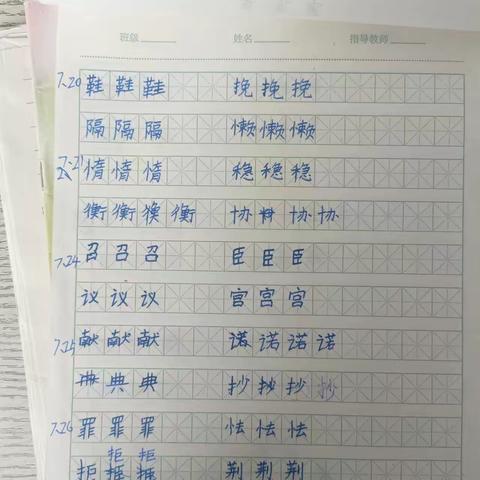 班级 姓名 指导教师
7.20 鞋 鞋 鞋 挽 挽 挽
隔 隔 隔 懒 懒 懒
7.21 惰 惰 惰 稳 稳 稳
衡 衡 衡 协 协 协
7.24 召 召 召 臣 臣 臣
议 议 议 宫 宫 宫
7.25 献 献 献 诺 诺 诺 诺
典 典 典 抄 抄 抄 抄
7.26 罪 罪 罪 怯 怯 怯
拒 拒
拒 荆 荆 荆